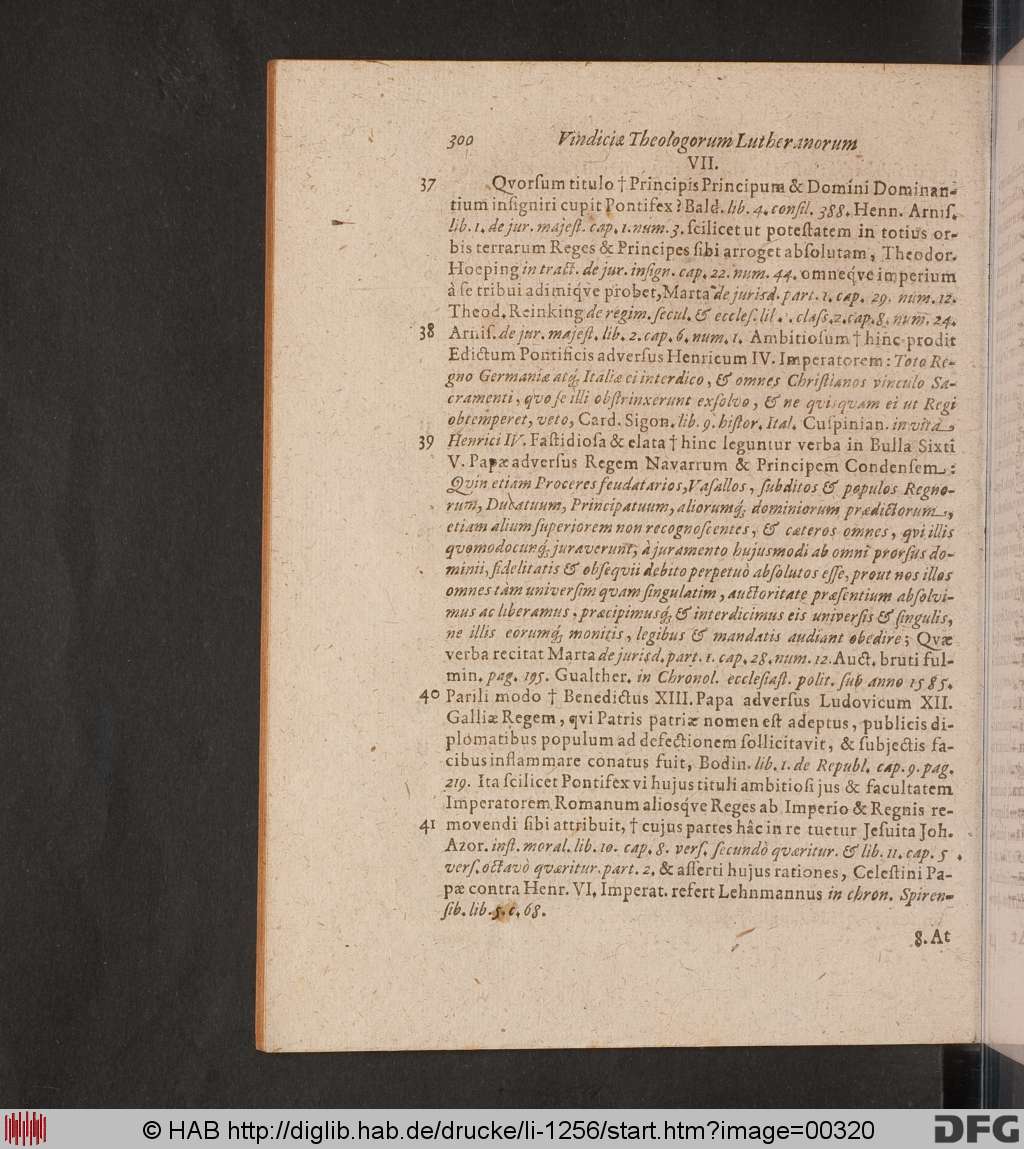 300 Vindiciæ Theologorum Lutheranorum
VII.
37 Qvorſum titulo † Principis Principum & Domini Dominan-
tium inſigniri cupit Pontifex? Bald. lib. 4. conſil. 388. Henn. Arniſ.
lib. 1. de jur. majeſt. cap. 1. num. 3. ſcilicet ut poteſtatem in totius or-
bis terrarum Reges & Principes ſibi arroget abſolutam, Theodor.
Hoeping in tract. de jur. inſign. cap. 22. num. 44. omneqve imperium
à ſe tribui adimiq́ve probet, Marta de jurisd. part. 1. cap. 29. num. 12.
Theod. Reinking de regim. ſecul. & eccleſ. claſſ. 2. cap. 8. num. 24.
38 Arniſ. de jur. majeſt. lib. 2. cap. 6. num. 1. Ambitioſum † hinc prodit
Edictum Pontificis adverſus Henricum IV. Imperatorem: Toto Re-
gno Germaniæ atq́; Italiæ ei interdico, & omnes Chriſtianos vinculo Sa-
cramenti, quo ſe illi obſtrinxerunt exſolvo, & ne quisquam ei ut Regi
obtemperet, veto, Card. Sigon. lib. 9. hiſtor. Ital. Cuſpinian. in vita
39 Henrici IV. Faſtidioſa & elata † hinc leguntur verba in Bulla Sixti
V. Papæ adverſus Regem Navarrum & Principem Condenſem:
Quin etiam Proceres feudatarios, Vaſallos, ſubditos & populos Regno-
rum, Ducatuum, Principatuum, aliorumq́; dominiorum prædictorum,
etiam alium ſuperiorem non recognoſcentes, & cæteros omnes, qvi illis
qvomodocunq́; juraverunt, à juramento hujusmodi ab omni prorſus do-
minii, fidelitatis & obſeqvii debito perpetuò abſolutos eſſe, prout nos illos
omnes tàm univerſim qvam ſingulatim, auctoritate præſentium abſolvi-
mus ac liberamus, præcipimusq́; & interdicimus eis univerſis & ſingulis,
ne illis eorumq́; monitis, legibus & mandatis audiant obedire; Qvæ
verba recitat Marta de jurisd. part. 1. cap. 28. num. 12. Auct. bruti ful-
min. pag. 195. Gualther. in Chronol. eccleſiaſt. polit. ſub anno 1585.
40 Parili modo † Benedictus XIII. Papa adverſus Ludovicum XII.
Galliæ Regem, qvi Patris patriæ nomen eſt adeptus, publicis di-
plomatibus populum ad defectionem ſollicitavit, & ſubjectis fa-
cibus inflammare conatus fuit, Bodin. lib. 1. de Republ. cap. 9. pag.
219. Ita ſcilicet Pontifex vi hujus tituli ambitioſi jus & facultatem
Imperatorem Romanum aliosqve Reges ab Imperio & Regnis re-
41 movendi ſibi attribuit, † cujus partes hâc in re tuetur Jeſuita Joh.
Azor. inſt. moral. lib. 10. cap. 8. verſ. ſecundò qværitur. & lib. 11. cap. 5.
verſ. octavò qværitur. part. 2. & aſſerti hujus rationes, Celeſtini Pa-
pæ contra Henr. VI. Imperat. refert Lehnmannus in chron. Spiren-
ſib. lib. 5. c. 68.
8. At
© HAB http://diglib.hab.de/drucke/li-1256/start.htm?image=00320
DFG